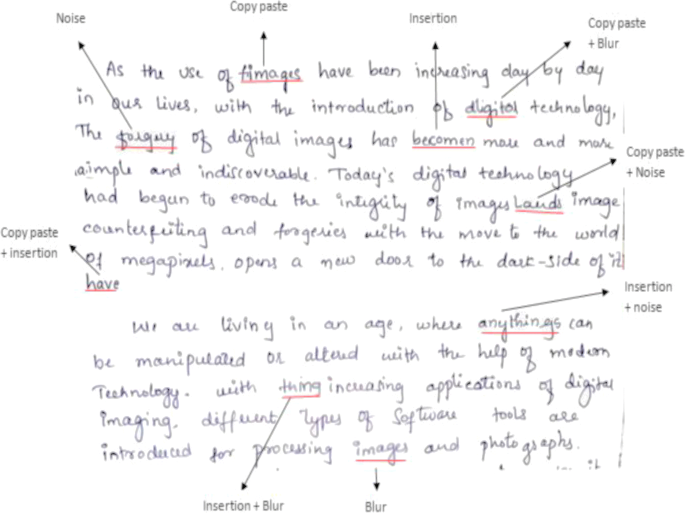 Noise
Copy paste
Insertion
Copy paste
+ Blur
As the use of fimages have been increasing day by day
in our lives, with the introduction of dligital technology,
The forgery of digital images has becomen more and more
simple and indiscoverable. Today's digital technology
Copy paste
+ Noise
had begun to erode the integrity of images Lands image
counterfeiting and forgeries with the move to the world
Copy paste
+ insertion
of megapixels, opens a new door to the dark-side of it
have
Insertion
+ noise
We are living in an age, where anythings can
be manipulated or altered with the help of modern
Technology. with thing increasing applications of digital
imaging, different Types of Software tools are
introduced for processing images and photographs.
Insertion + Blur
Blur